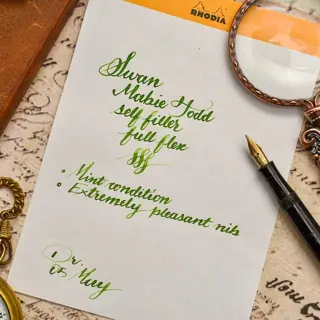 RHODIA
Swan
Mabie Todd
self filler
full flex
Mint condition
Extremely pleasant nib
Dr.
05 May